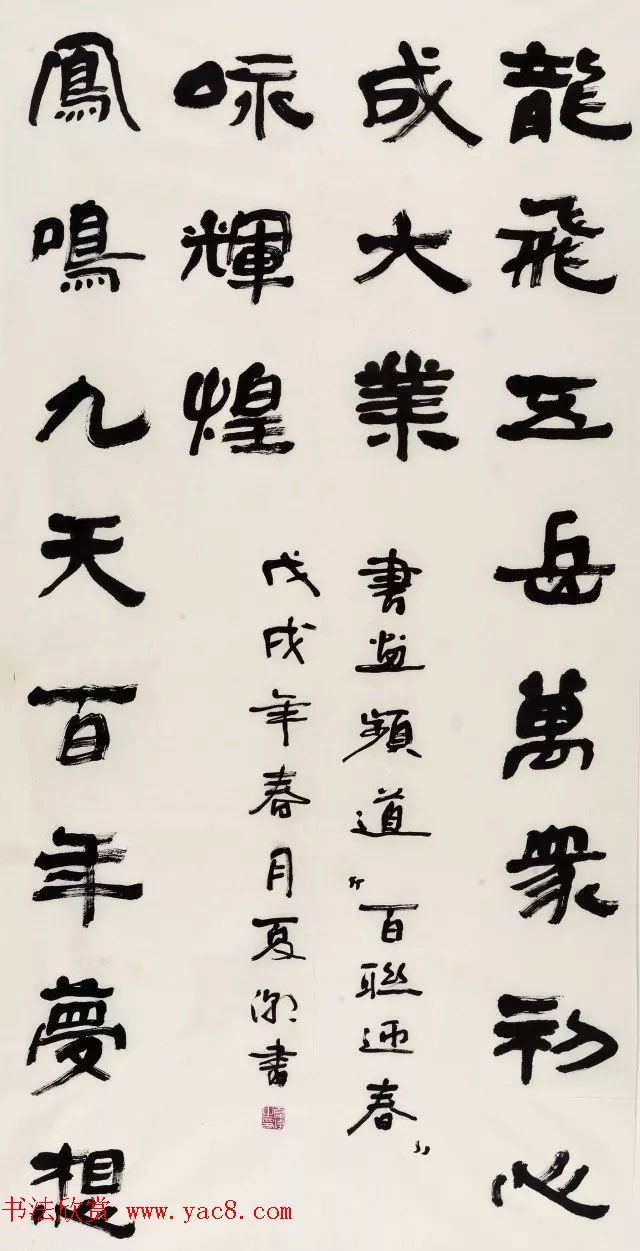 龍飛五岳萬衆初心
成大業
鳳鳴九天百年夢想
咏輝煌
書畫頻道“百聯迎春”
戊戌年春月夏潮書
书法欣赏 www.yac8.com